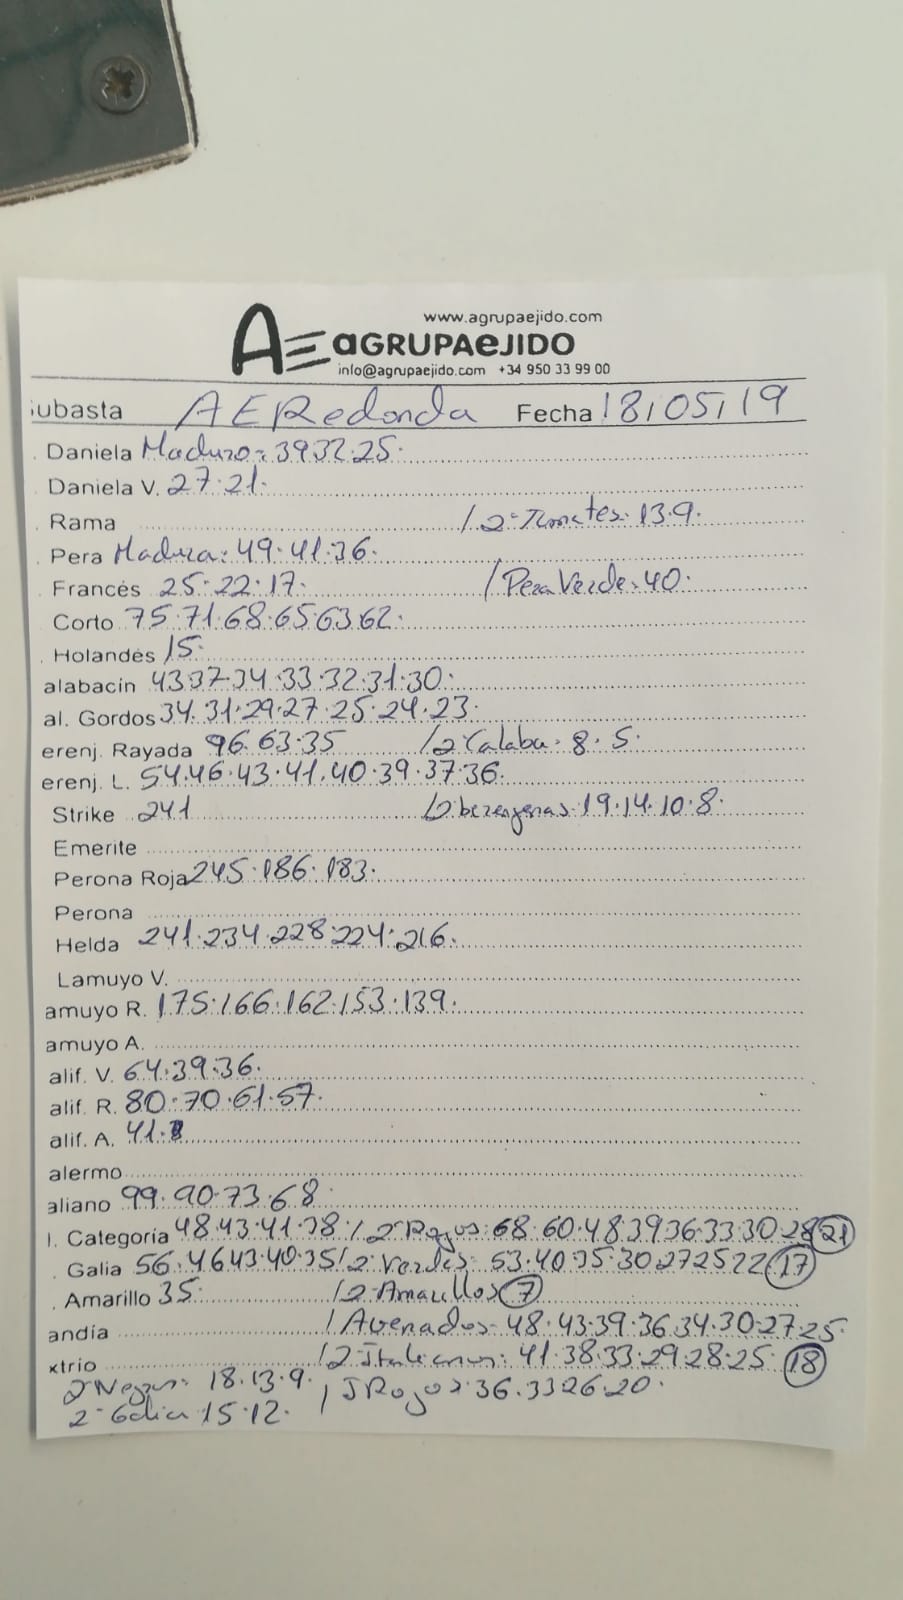 www.agrupaejido.com
AE aGRUPAeJIDO
info@agrupaejido.com +34 950 33 99 00
ubasta AERedonda Fecha 18/05/19
Daniela Maduro: 39.32.25.
Daniela V. 27.21.
Rama /2ª Tomates. 13.9.
Pera Madura: 49.41.36.
Francés 25.22.17. / Pera Verde. 40.
Corto 75.71.68.65.63.62.
Holandés 15.
alabacín 43.37.34.33.32.31.30.
al. Gordos 34.31.29.27.25.24.23.
erenj. Rayada 96.63.35 /2ª Calaba. 8.5.
erenj. L. 54.46.43.41.40.39.37.36.
Strike 241 /2 berenjenas. 19.14.10.8.
Emerite
Perona Roja 245.186.183.
Perona
Helda 241.234.228.224.216.
Lamuyo V.
amuyo R. 175.166.162.153.139.
amuyo A.
alif. V. 64.39.36.
alif. R. 80.70.61.57.
alif. A. 41.
alermo
aliano 99.90.73.68.
I. Categoría 48.43.41.38 / 2ª Rojos: 68.60.48.39.36.33.30.28 21
Galia 56.46.43.40.35 / 2ª Verdes: 53.40.35.30.27.25.22 17
Amarillo 35. /2ª Amarillos 7
andía / Asenados. 48.43.39.36.34.30.27.25.
xtrio /2ª Italianos: 41.38.33.29.28.25. 18
2ª Negras: 18.13.9. / J Rojos: 36.33.26.20.
2ª Galia 15.12.